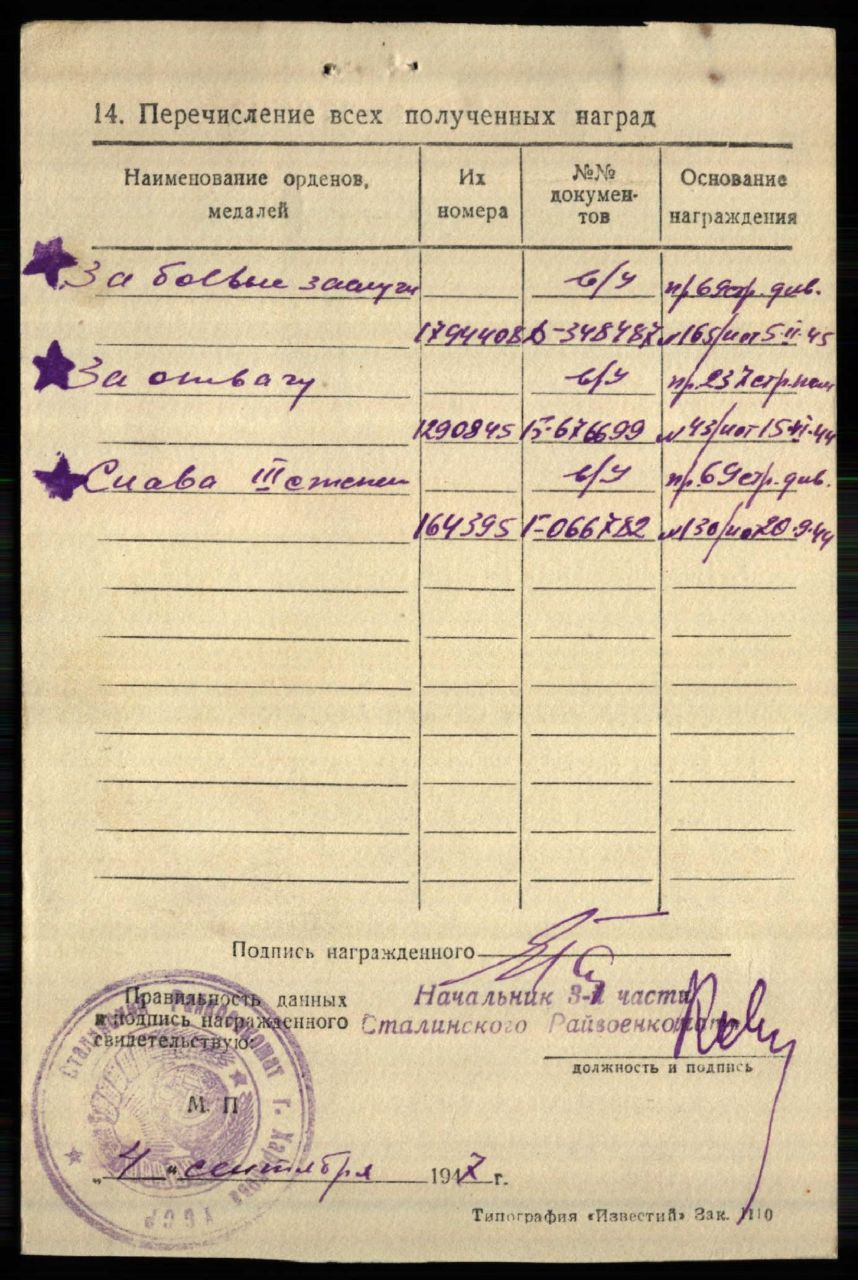 14. Перечисление всех полученных наград
Наименование орденов, медалей
Их номера
№№ докумен-тов
Основание награждения
За боевые заслуги в/у пр. 69 стр. див.
1794408 Д-348487 №165/н от 5-II-45
За отвагу в/у пр. 237 стр. полк
1290845 Б-676699 №43/н от
Слава III степени в/у пр. 69 стр. див.
164395 Г-066782 №130/н от 20.9.44
Подпись награжденного
Правильность данных
и подпись награжденного
свидетельствую:
Начальник 3-й части
Сталинского Райвоенкомата
должность и подпись
М. П
Сталинский Райвоенкомат г. Харькова УССР
„4“ сентября 1947 г.
Типография «Известий» Зак. 1110